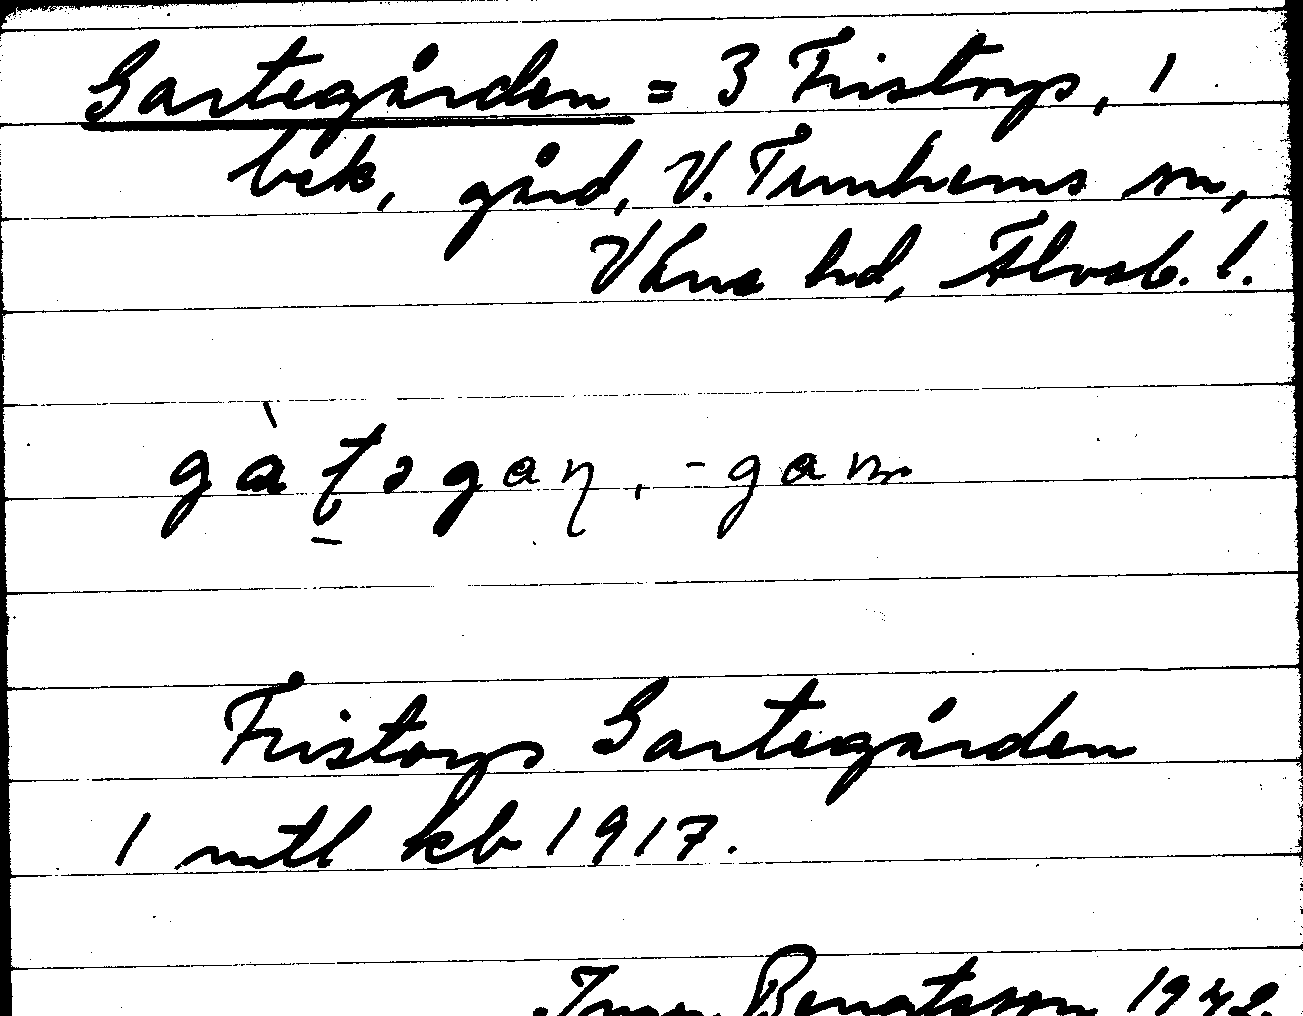 Gartegården = 3 Fristorp, 1
bek, gård, V. Tunhems sn,
Väne hd, Älvsb. l.
gàʈəgaɳ, -gam
Fristorp Gartegården
1 mtl kb 1917.
Bengtsson 1942.